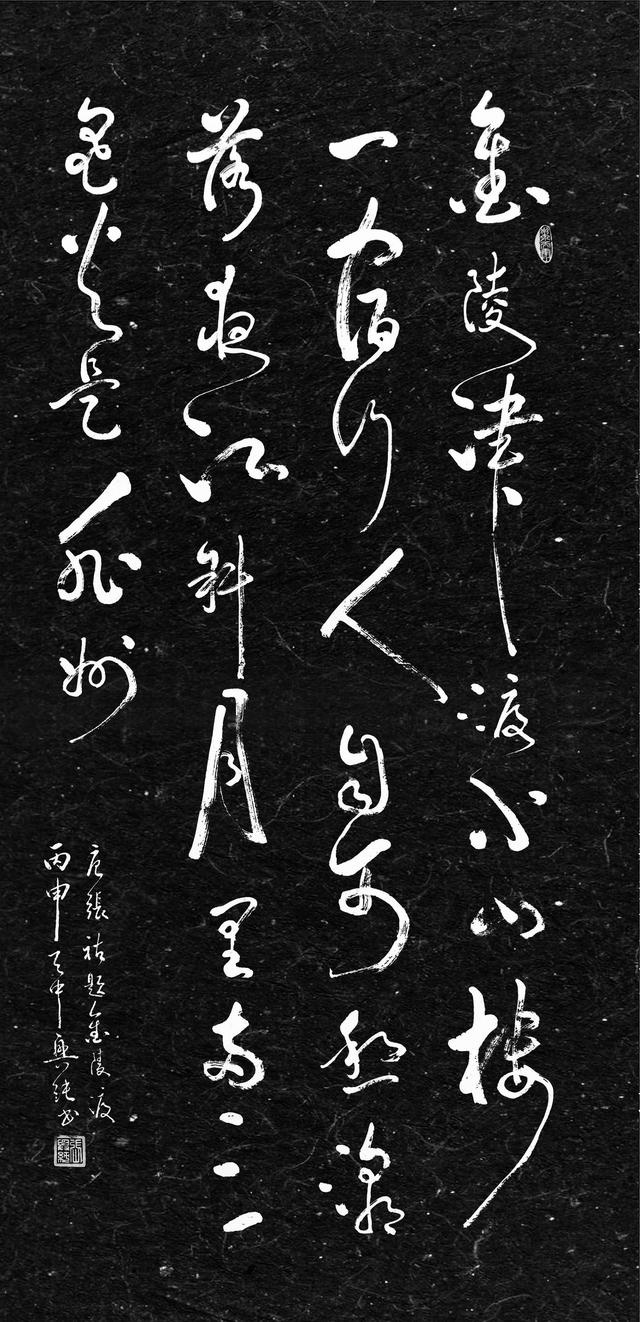 金陵津渡小山楼
一宿行人自可愁潮
落夜江斜月里两三
星火是瓜州
唐張祜题金陵渡
丙申天中興纯书